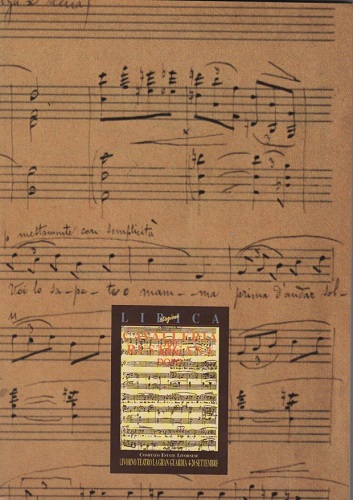 mestamente con semplicità
Voi lo sa-pe-te o mam--ma prima d'andar sol-
LIRICA
CAVALLERIA
RUSTICANA
DOPO
COMITATO ESTATE LIVORNESE
LIVORNO TEATRO LA GRAN GUARDIA 4-20 SETTEMBRE